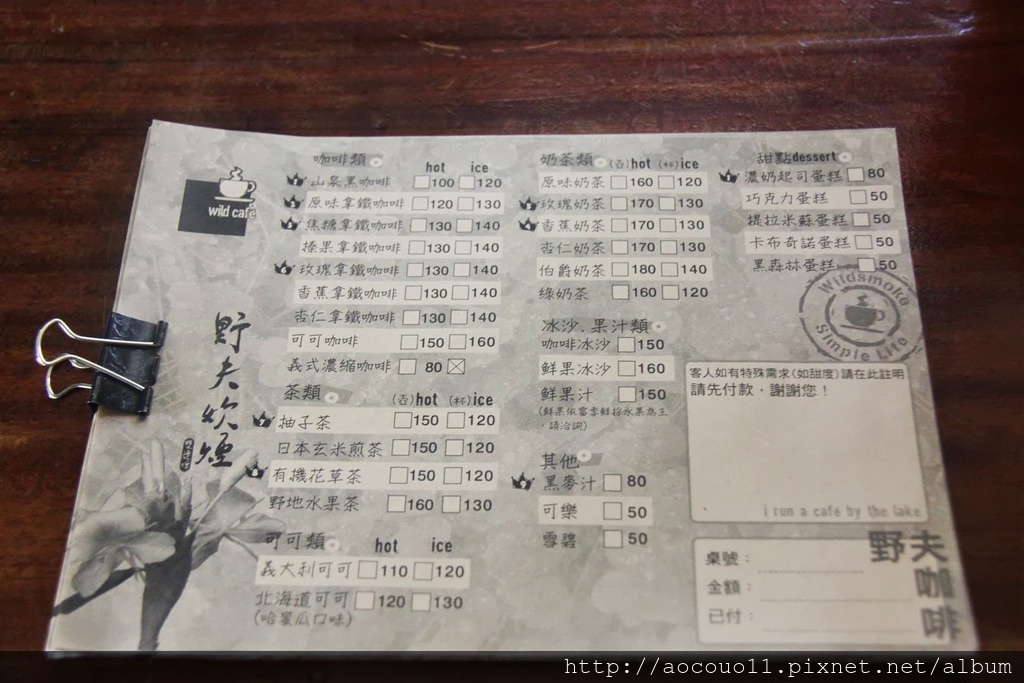 wild café
野夫炊煙
咖啡類 hot ice
山泉黑咖啡 100 120
原味拿鐵咖啡 120 130
焦糖拿鐵咖啡 130 140
榛果拿鐵咖啡 130 140
玫瑰拿鐵咖啡 130 140
香蕉拿鐵咖啡 130 140
杏仁拿鐵咖啡 130 140
可可咖啡 150 160
義式濃縮咖啡 80
茶類 (壺)hot (杯)ice
柚子茶 150 120
日本玄米煎茶 150 120
有機花草茶 150 120
野地水果茶 160 130
可可類 hot ice
義大利可可 110 120
北海道可可 120 130
(哈蜜瓜口味)
奶茶類 (壺)hot (杯)ice
原味奶茶 160 120
玫瑰奶茶 170 130
香蕉奶茶 170 130
杏仁奶茶 170 130
伯爵奶茶 180 140
綠奶茶 160 120
冰沙.果汁類
咖啡冰沙 150
鮮果冰沙 160
鮮果汁 150
(鮮果依當季鮮採水果為主
,請洽詢)
其他
黑麥汁 80
可樂 50
雪碧 50
甜點dessert
濃奶起司蛋糕 80
巧克力蛋糕 50
提拉米蘇蛋糕 50
卡布奇諾蛋糕 50
黑森林蛋糕 50
Wildsmoke
Simple Life
客人如有特殊需求(如甜度)請在此註明
請先付款,謝謝您!
i run a café by the lake
桌號:
金額:
已付:
野夫咖啡
http://aocouo11.pixnet.net/album